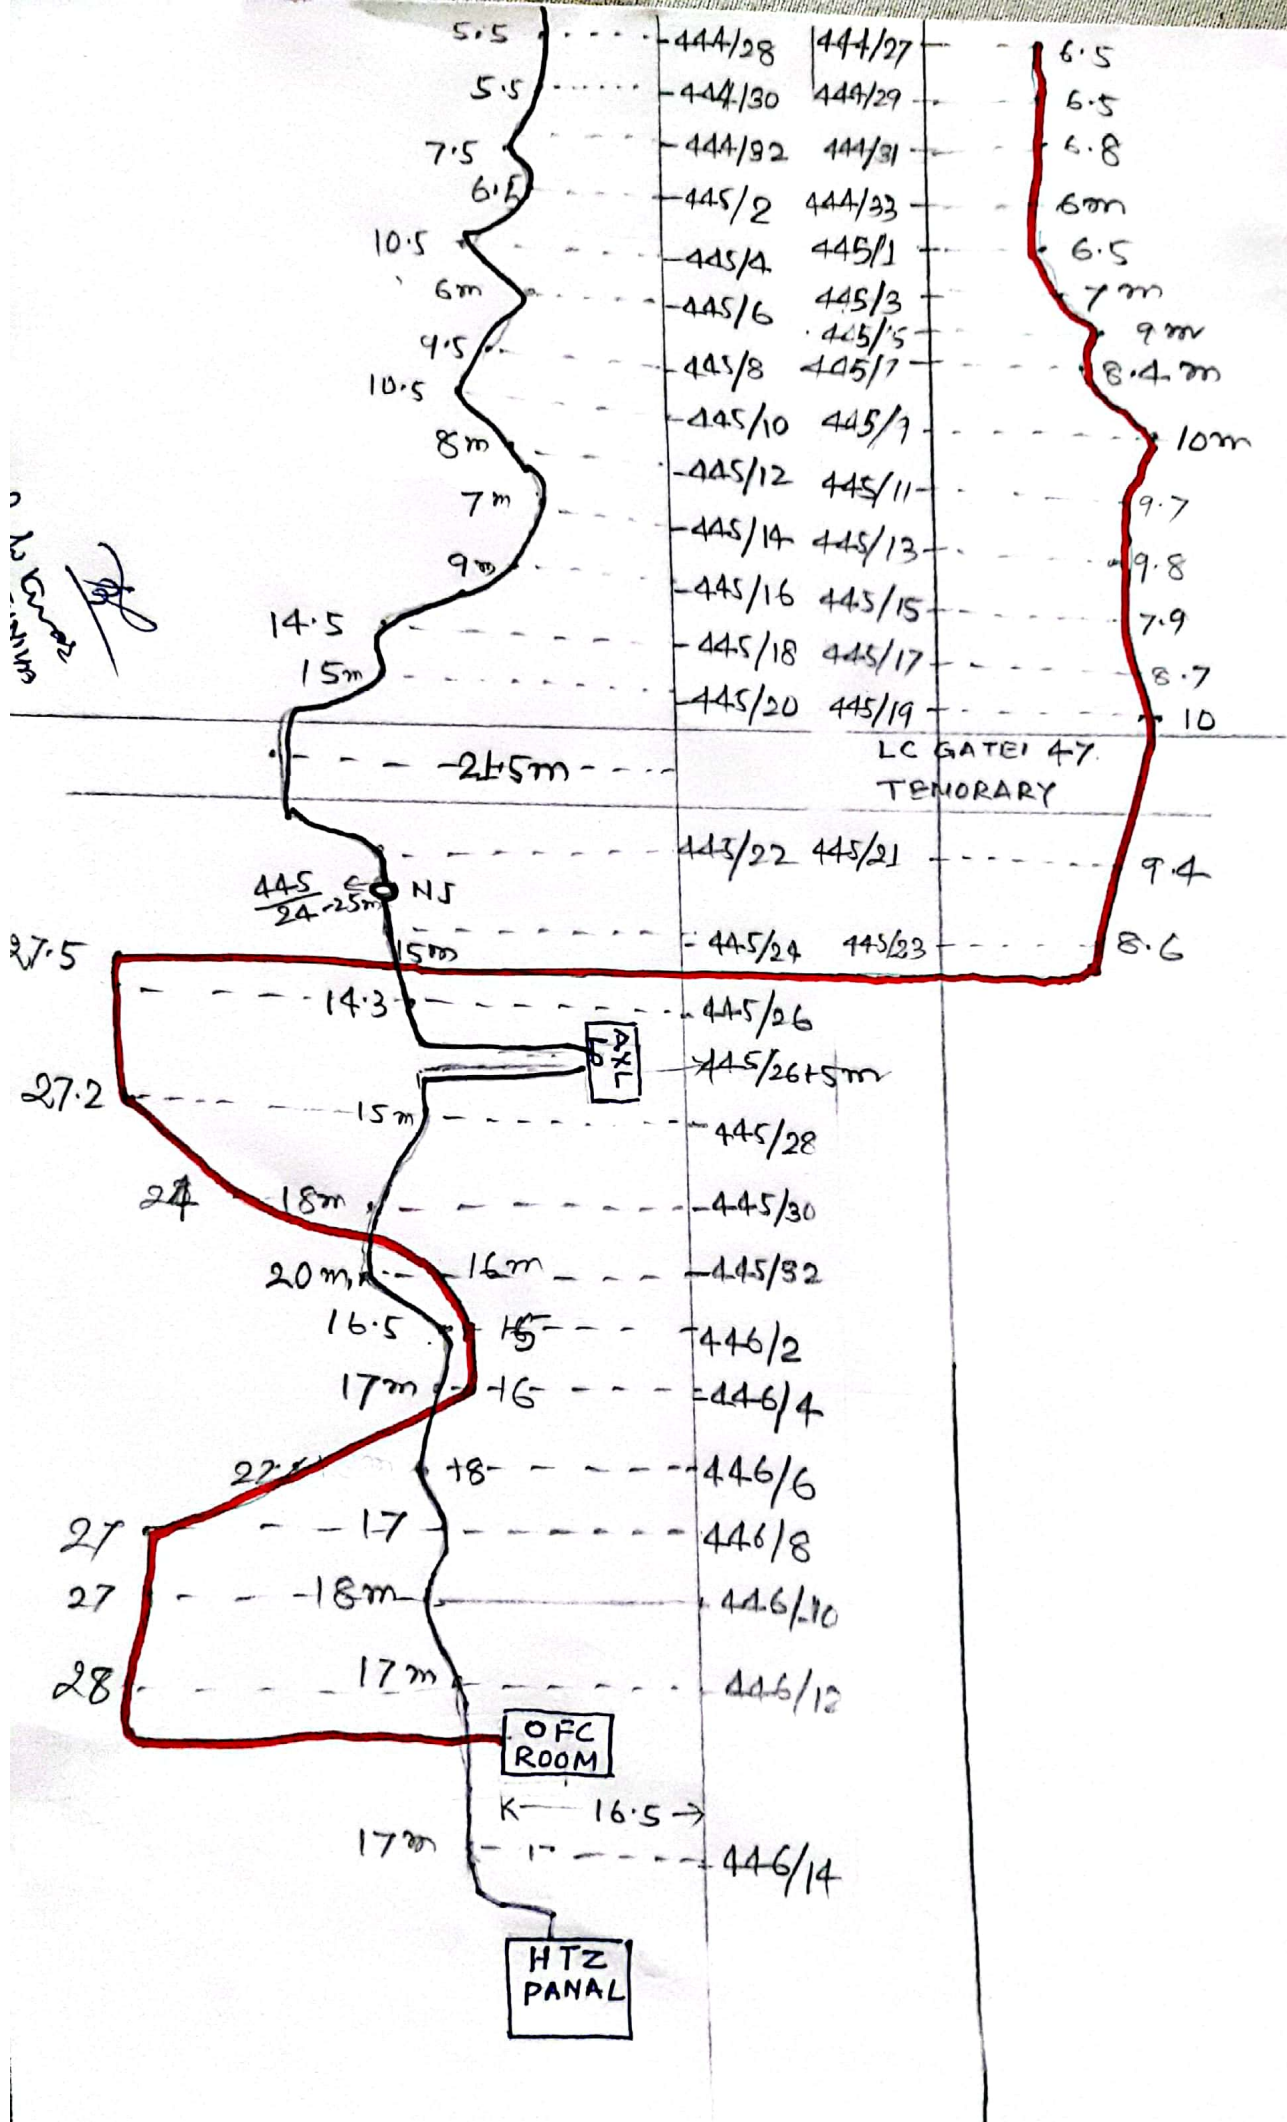 5.5 444/28 444/27 6.5
5.5 444/30 444/29 6.5
7.5 444/32 444/31 6.8
6.5 445/2 444/33 6m
10.5 445/4 445/1 6.5
6m 445/6 445/3 7m
445/5 9m
9.5 445/8 445/7 8.4m
10.5 445/10 445/9 10m
8m 445/12 445/11 9.7
7m 445/14 445/13 9.8
9m 445/16 445/15 7.9
14.5 445/18 445/17 8.7
15m 445/20 445/19 10
LC GATE 47
TEMORARY
445/22 445/21 9.4
445/24 -25m NJ
27.5 15m 445/24 445/23 8.6
14.3 445/26
AXL
445/26+5m
27.2 15m 445/28
24 18m 445/30
20m 16m 445/32
16.5 15 446/2
17m 16 446/4
18 446/6
27 17 446/8
27 18m 446/10
28 17m 446/12
OFC
ROOM
16.5
17m 446/14
HTZ
PANAL